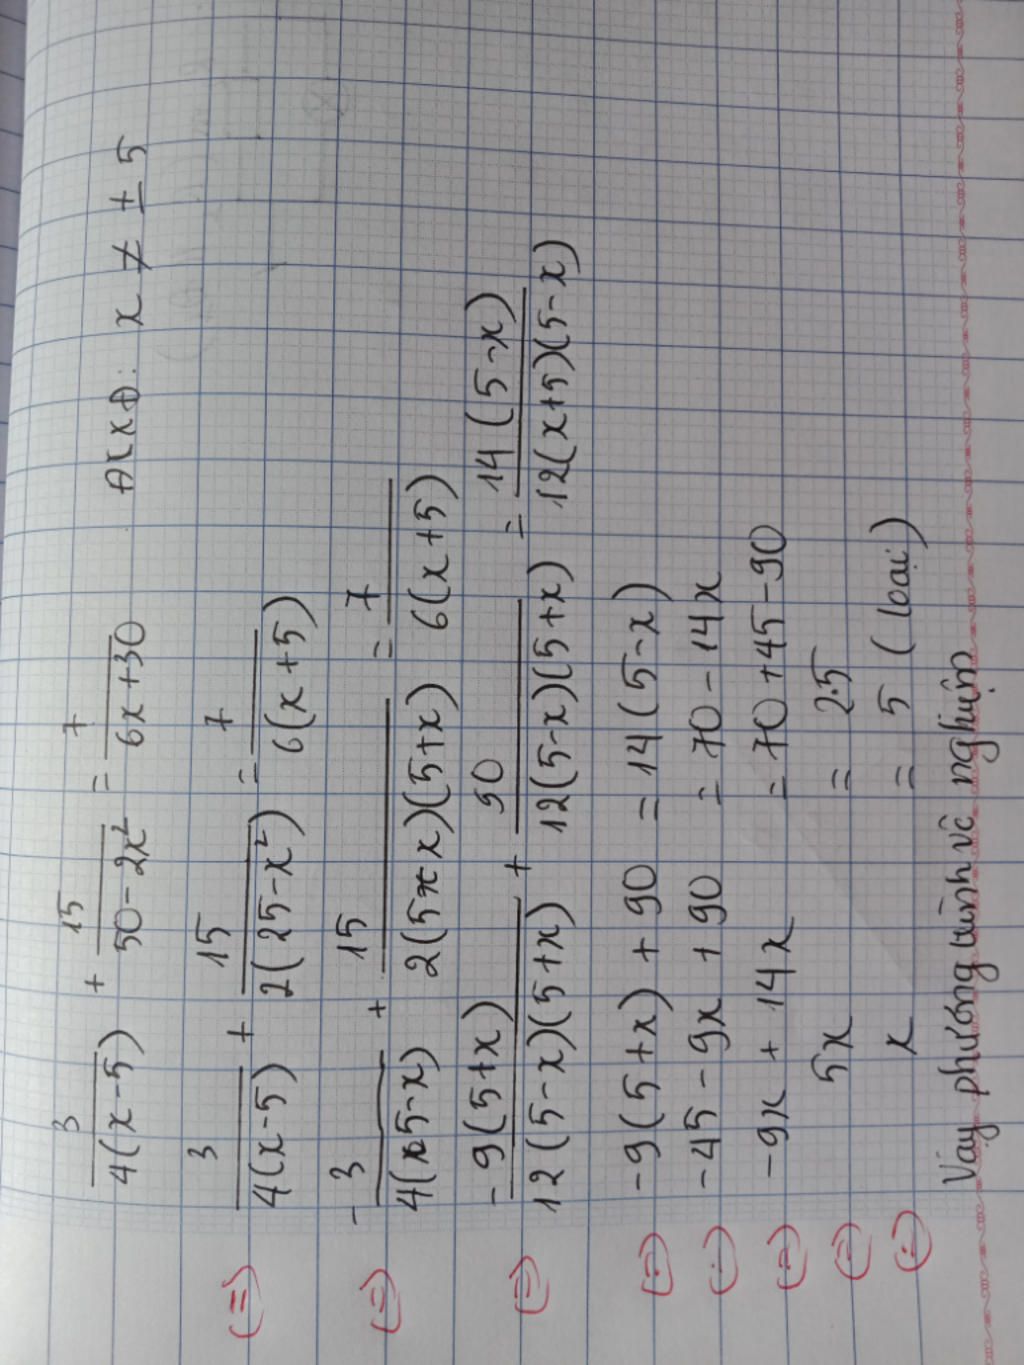 3/4(x-5) + 15/50-2x² = 7/6x+30 ĐKXĐ: x ≠ ± 5
(=) 3/4(x-5) + 15/2(25-x²) = 7/6(x+5)
(=) -3/4(5-x) + 15/2(5-x)(5+x) = 7/6(x+5)
(=) -9(5+x)/12(5-x)(5+x) + 90/12(5-x)(5+x) = 14(5-x)/12(x+5)(5-x)
(=) -9(5+x) + 90 = 14(5-x)
(=) -45-9x+90 = 70-14x
(=) -9x + 14x = 70+45-90
(=) 5x = 25
(=) x = 5 (loại)
Vậy phương trình vô nghiệm